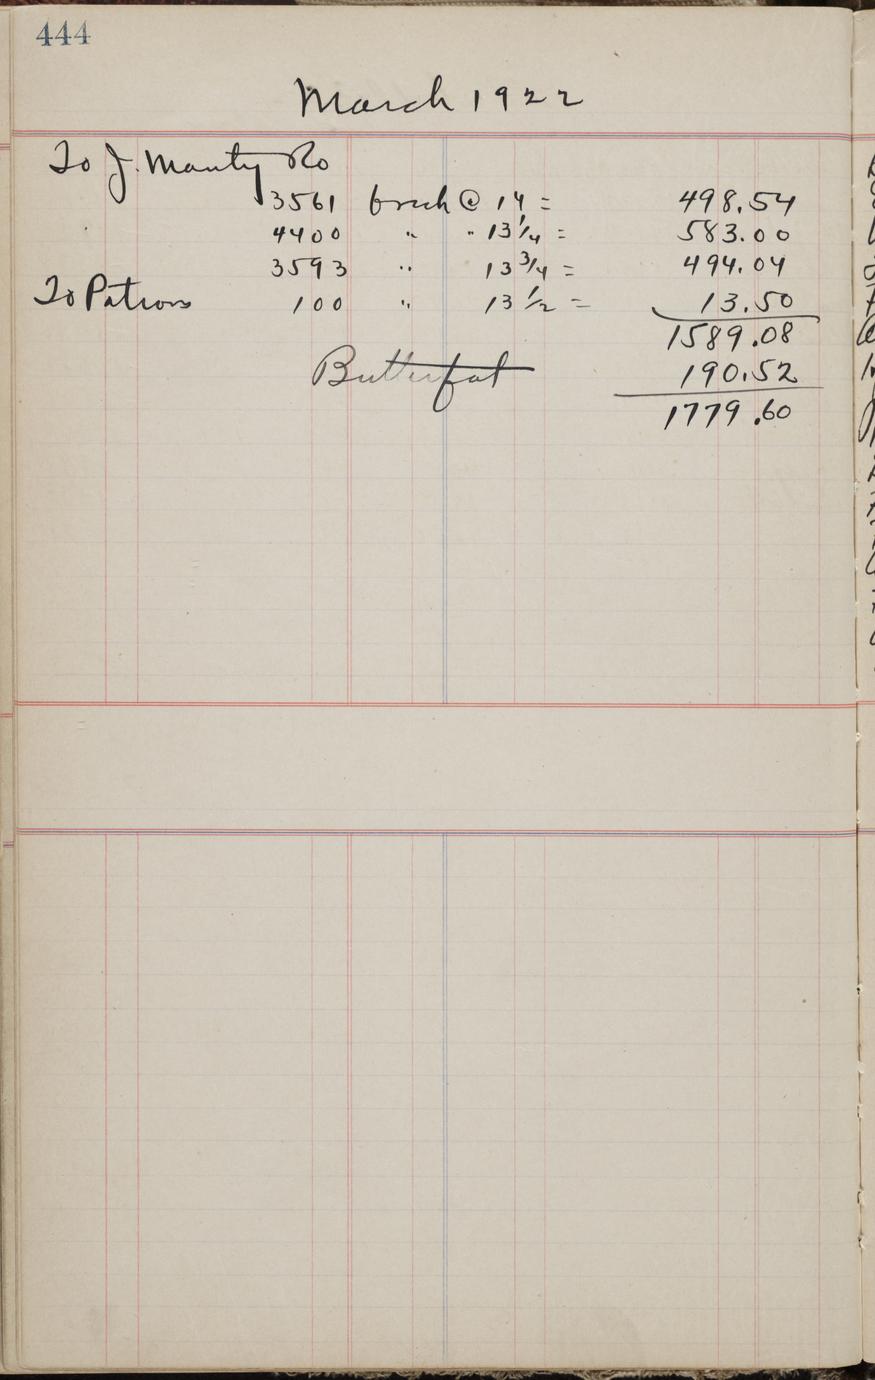 444
March 1922
To J. Manty Co
3561 brick @ 14 = 498.54
4400 " " 13 1/4 = 583.00
3593 " 13 3/4 = 494.04
To Patrons 100 " 13 1/2 = 13.50
1589.08
Butterfat 190.52
1779.60